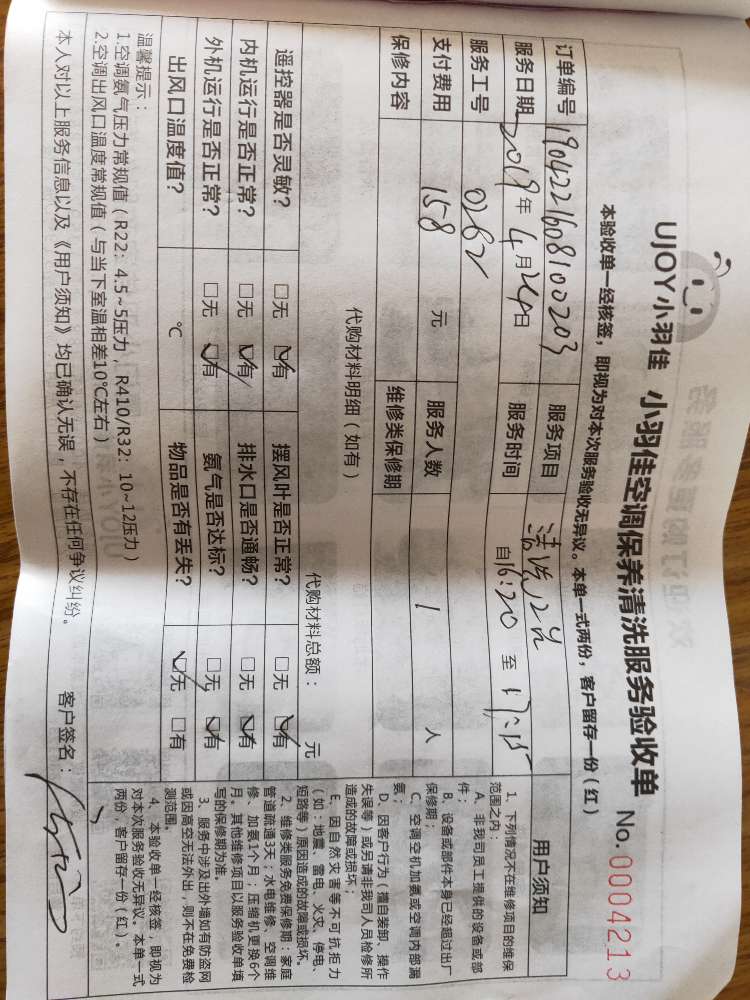 UJOY小羽佳 小羽佳空调保养清洗服务验收单 No. 0004213
本验收单一经核签，即视为对本次服务验收无异议。本单一式两份，客户留存一份（红）
订单编号 1904221608100203 服务项目 清洗2次
服务日期 2019年4月24日 服务时间 自16:20 至 17:15
服务工号 0262
支付费用 158 元 服务人数 1 人
保修内容 维修类保修期
代购材料明细（如有） 代购材料总额： 元
遥控器是否灵敏？ □无 ☑有 摆风叶是否正常？ □无 ☑有
内机运行是否正常？ □无 ☑有 排水口是否通畅？ □无 ☑有
外机运行是否正常？ □无 ☑有 氨气是否达标？ □无 ☑有
出风口温度值？ ℃ 物品是否有丢失？ ☑无 □有
温馨提示：
1.空调氨气压力常规值（R22：4.5~5压力，R410/R32：10~12压力）
2.空调出风口温度常规值（与当下室温相差10℃左右）
本人对以上服务信息以及《用户须知》均已确认无误，不存在任何争议纠纷。 客户签名：
用户须知
1、下列情况不在维修项目的维保
范围之内：
A、非我司员工提供的设备或部
件；
B、设备或部件本身已经超过出厂
保修期；
C、空调空机加氨或空调内部漏
氨；
D、因客户行为（擅自装卸、操作
失误等）或另请非我司人员检修所
造成的故障或损坏；
E、因自然灾害等不可抗拒力
（如：地震、雷电、火灾、停电、
短路等）原因造成的故障或损坏。
2、维修类服务免费保修期：家庭
管道疏通3天；水电维修、空调维
修、加氨1个月；压缩机更换6个
月。其他维修项目以服务验收单填
写的保修期为准。
3、服务中涉及出外墙如有防盗网
或因真空无法外出，则不在免费检
测范围。
4、本验收单一经核签，即视为
对本次服务验收无异议。本单一式
两份，客户留存一份（红）。